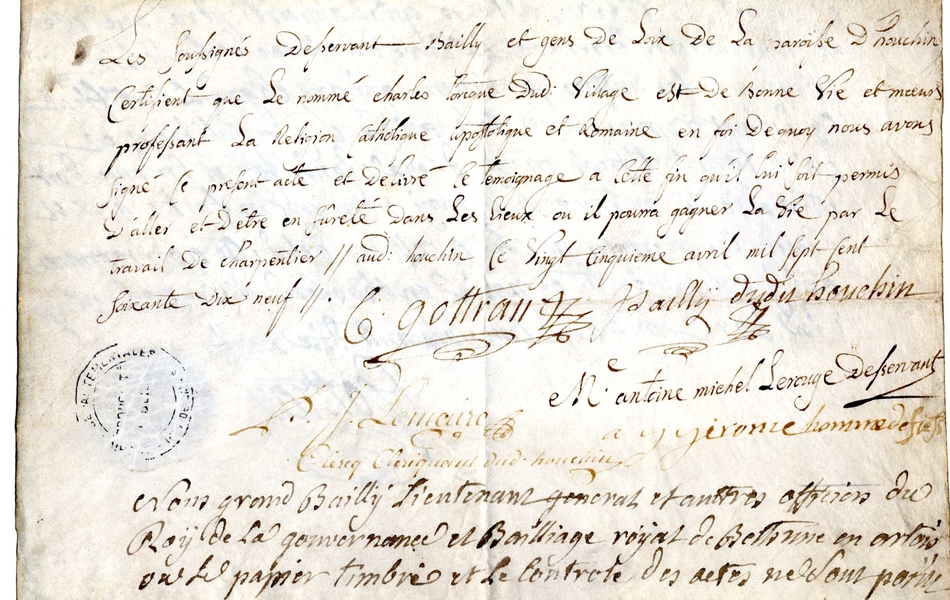 Les soussignés Deservant Bailly et gens De Loix De La paroisse D'houchin
Certifient que Le nommé charles Dud: Village est De Bonne Vie et mœurs
professant La Religion Catholique apostolique et Romaine en foi Dequoy nous avons
signé Ce present acte et Delivré Ce temoignage a Cette fin qu'il lui soit permis
D'aller et D'être en sûreté Dans Les Lieux ou il pourra gagner La Vie par Le
travail De charpentier // aud: houchin Ce Vingt Cinquieme avril mil sept Cent
soixante Dix neuf //. C. gottran Bailly dudit houchin
M. antoine michel Lerouge Deservant
P. J. Lemaire
a j jerome homme de fief
Clercq dud: houchin
Nous grand Bailly Lieutenant general et auttres officiers du
Roÿ de La gouvernance et Bailliage roÿal de Bethune en artois
ou Le papier timbré et Le Controle des actes ne sont point